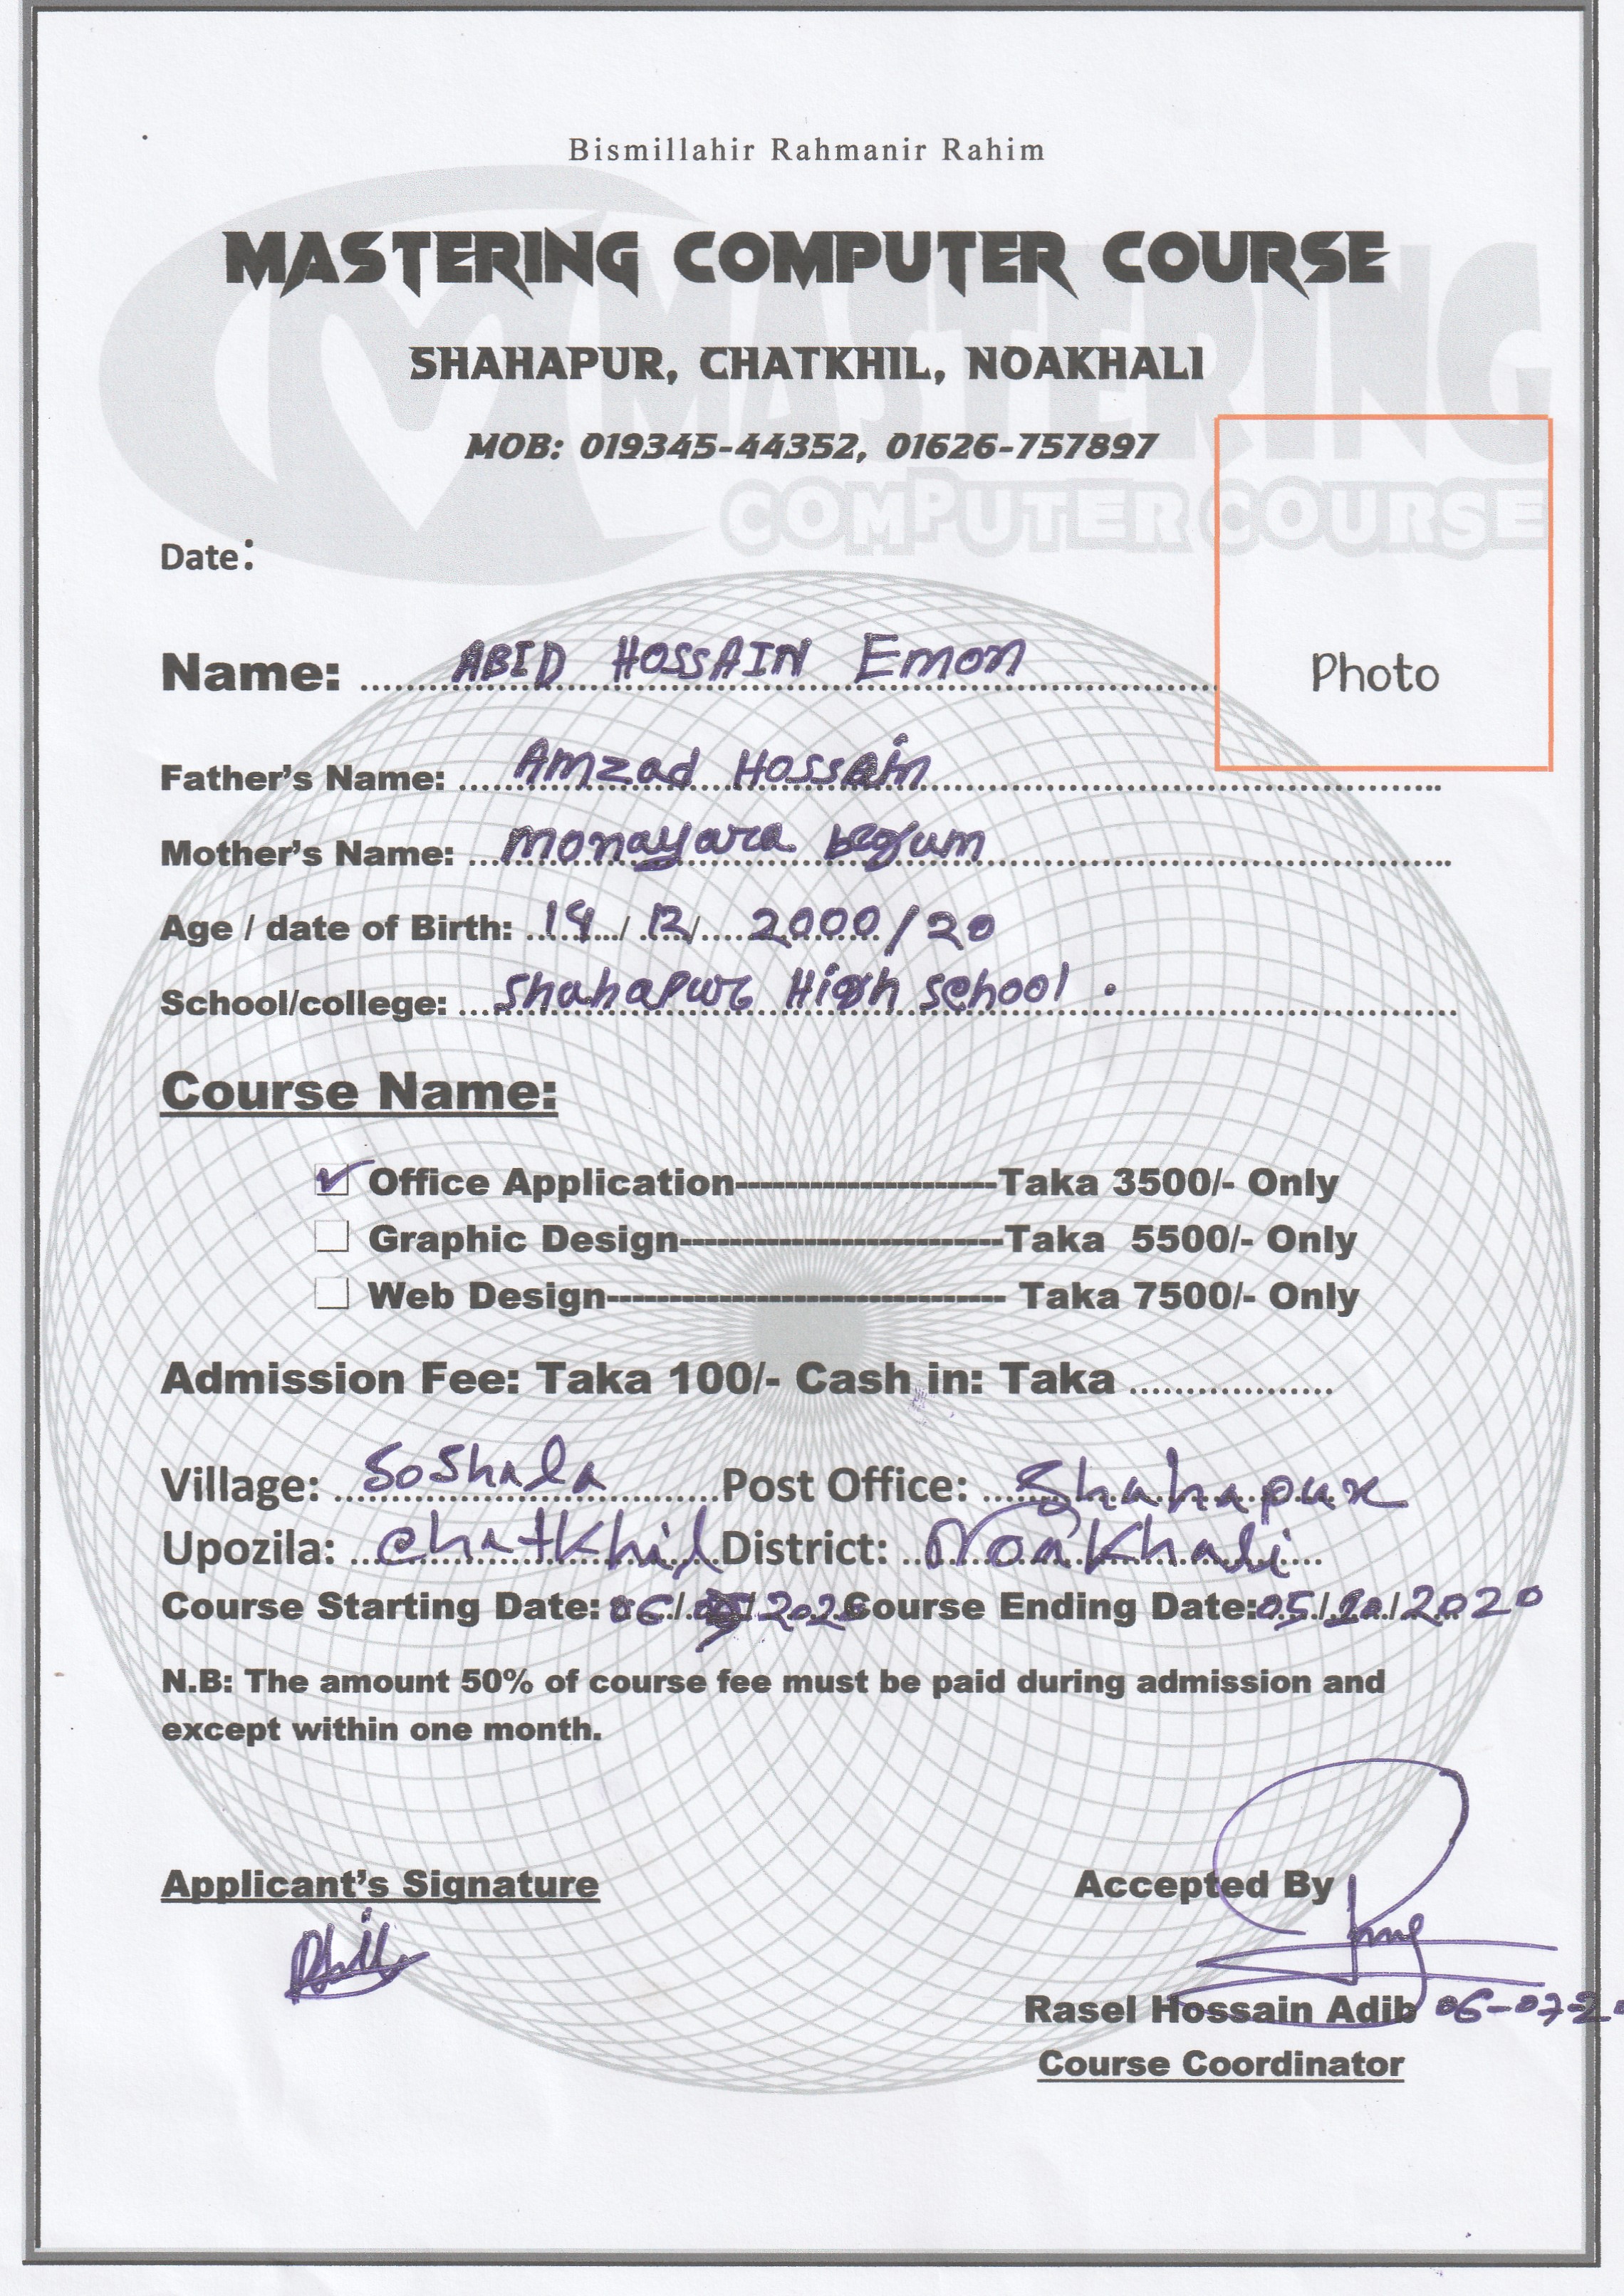 Bismillahir Rahmanir Rahim
MASTERING COMPUTER COURSE
SHAHAPUR, CHATKHIL, NOAKHALI
MOB: 019345-44352, 01626-757897
MASTERING
COMPUTER COURSE
Date:
Photo
Name: ABID HOSSAIN Emon
Father's Name: Amzad Hossain
Mother's Name: monayara begum
Age / date of Birth: 18/12/2000/20
School/college: Shahapur High school .
Course Name:
Office Application---------------------Taka 3500/- Only
Graphic Design--------------------------Taka 5500/- Only
Web Design-------------------------------- Taka 7500/- Only
Admission Fee: Taka 100/- Cash in: Taka ..................
Village: Soshala Post Office: Shahapur
Upozila: Chatkhil District: Noakhali
Course Starting Date: 06/ /2020 Course Ending Date: 05/10/2020
N.B: The amount 50% of course fee must be paid during admission and
except within one month.
Applicant's Signature
Accepted By
Rasel Hossain Adib 06-07-20
Course Coordinator